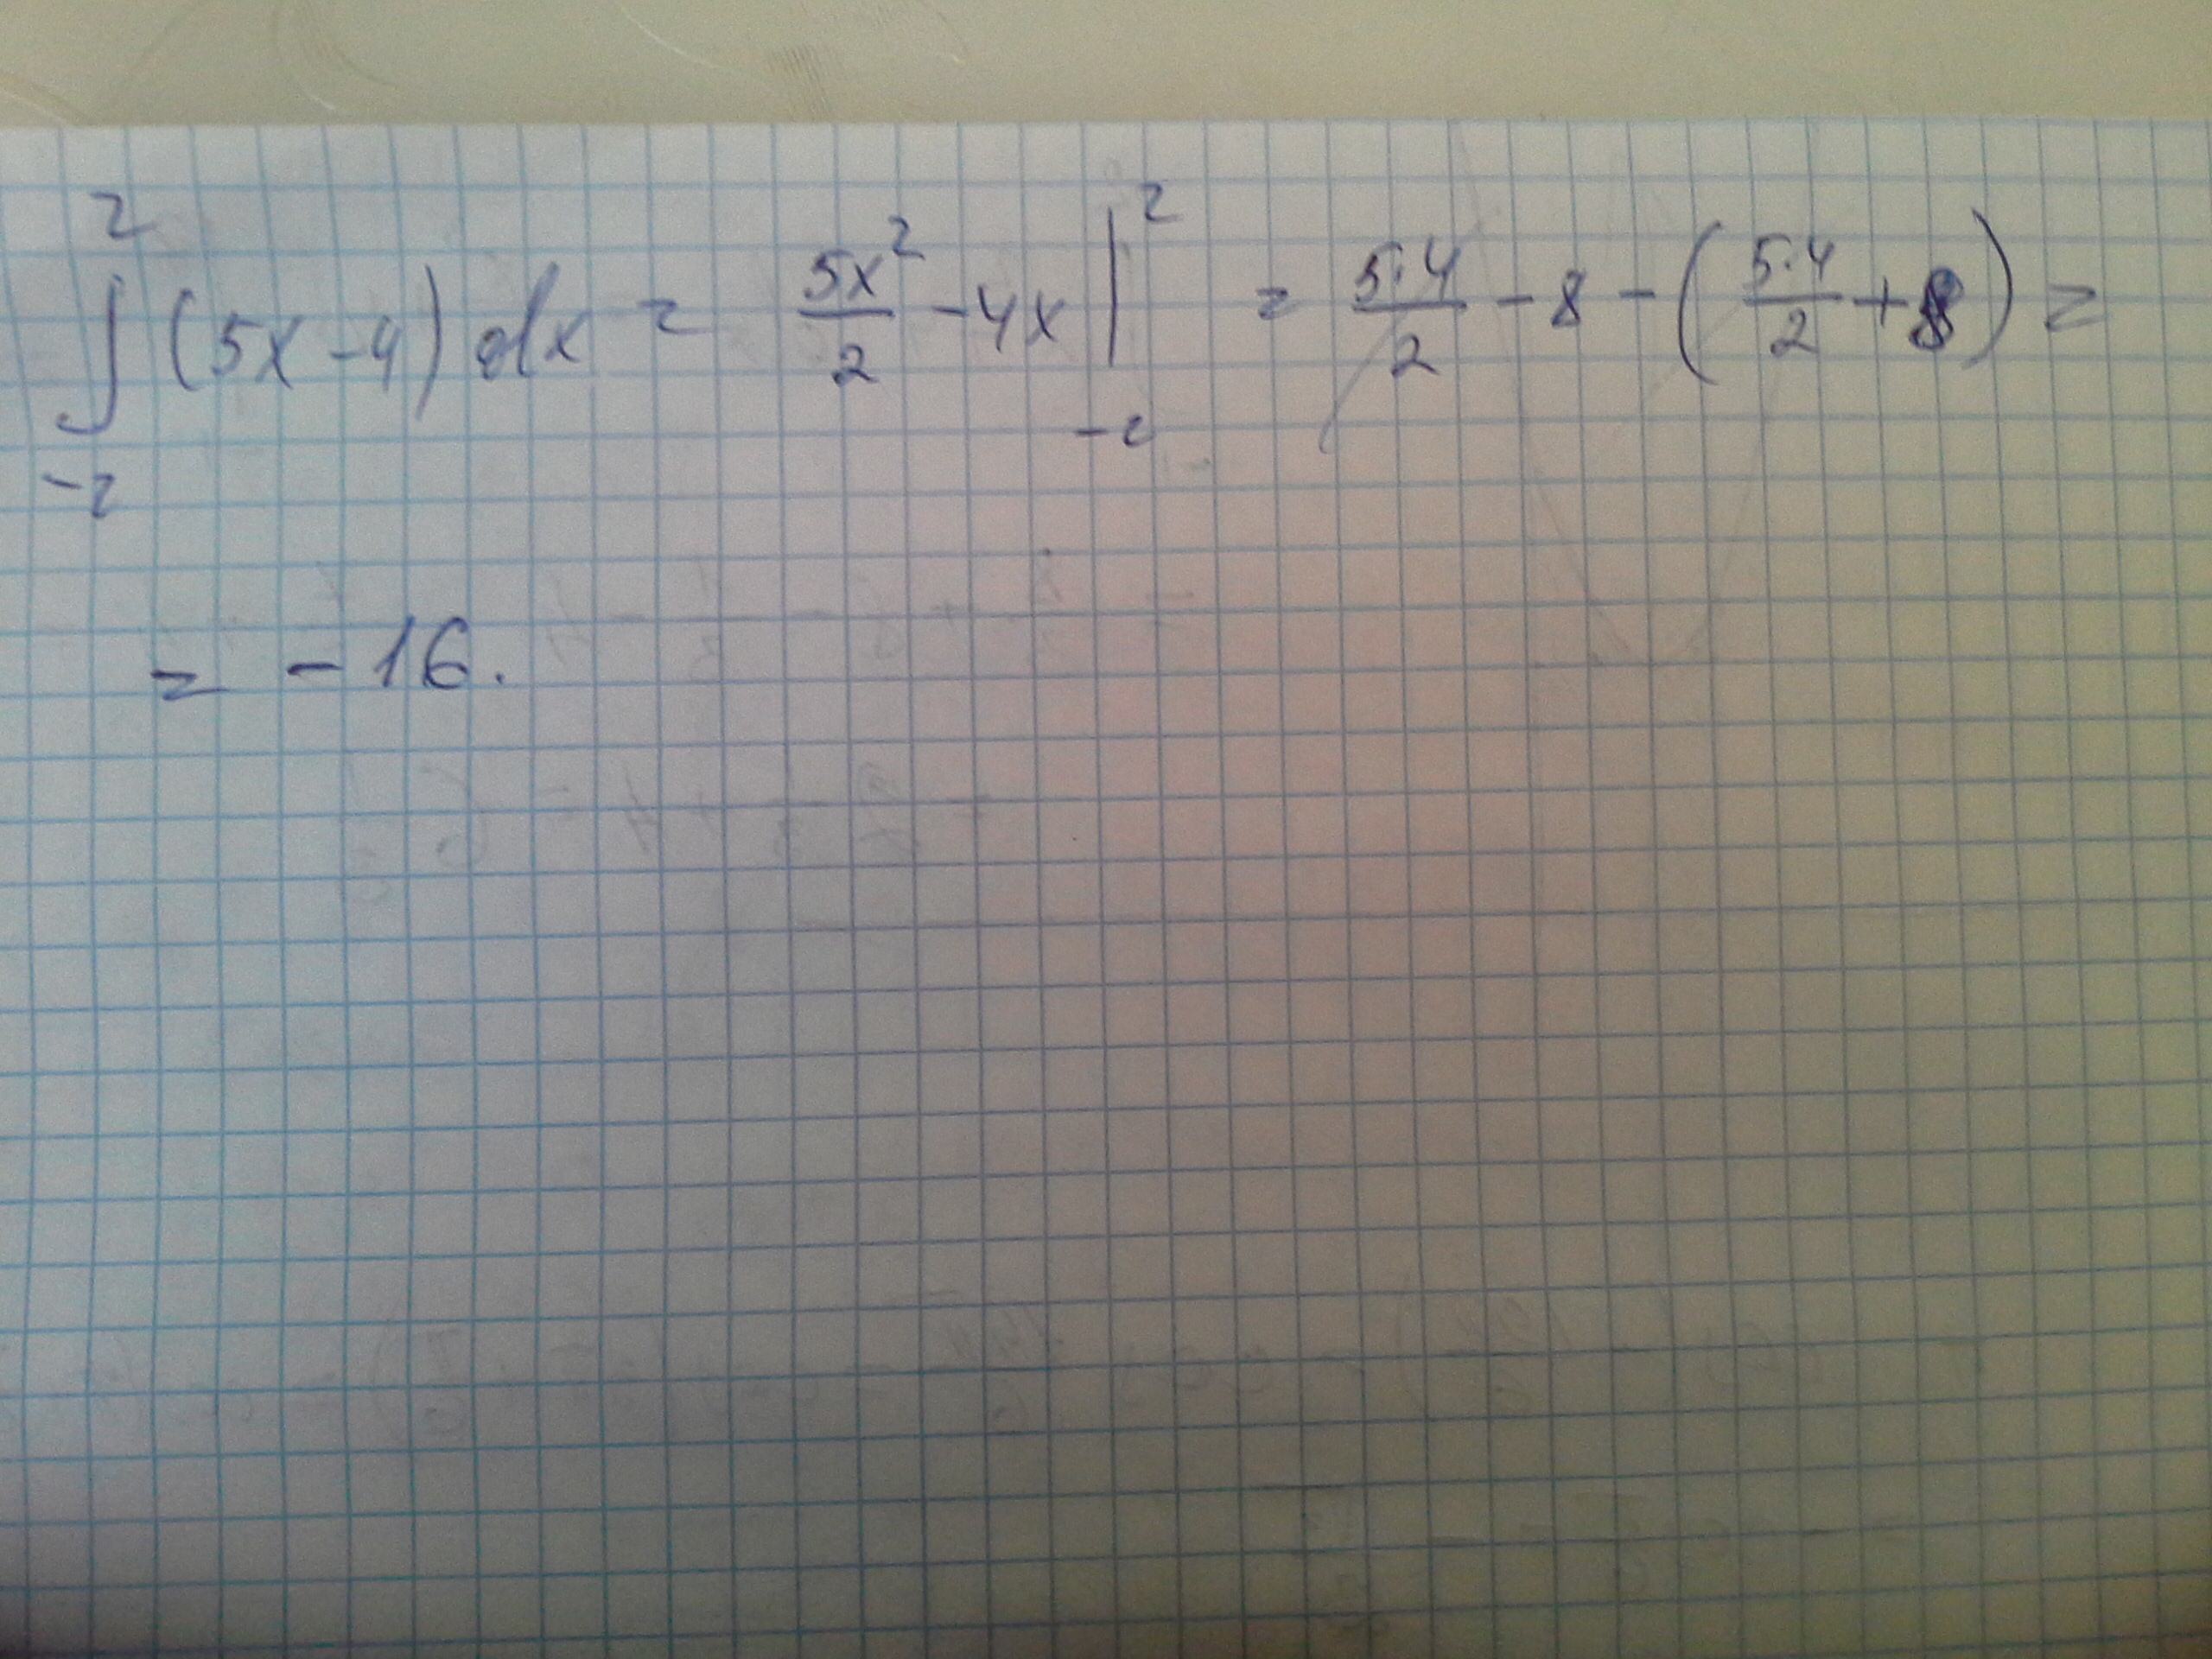 ∫₋₂² (5x-4) dx = 5x²/2 - 4x |₋₂² = 5·4/2 - 8 - (5·4/2 + 8) =
= -16.